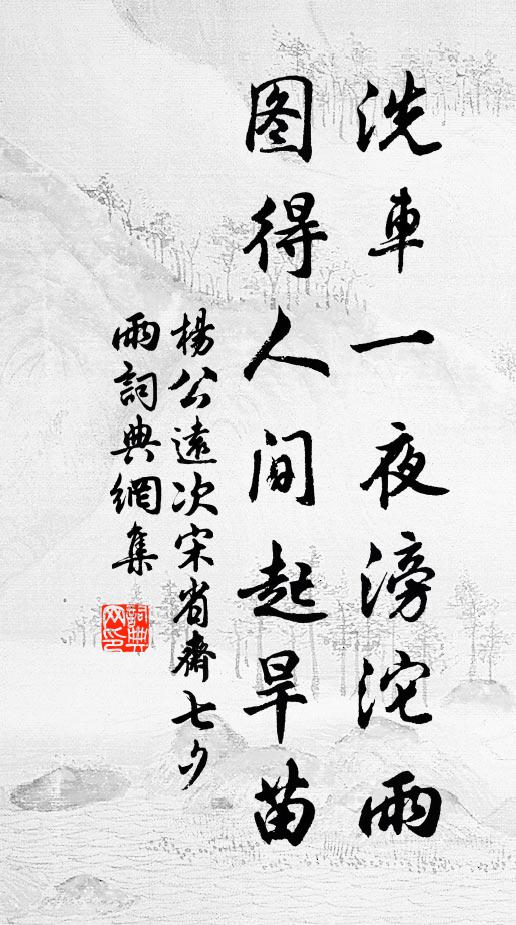 洗車一夜滂沱雨
图得人间起旱苗
楊公遠次宋省齋七夕
雨詞典網集
詞典網印